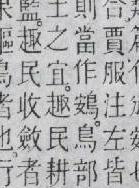 合賈服注左皆
則當作。鳥部
土之宜。趣民耕
監。趣民收斂者
者也。行